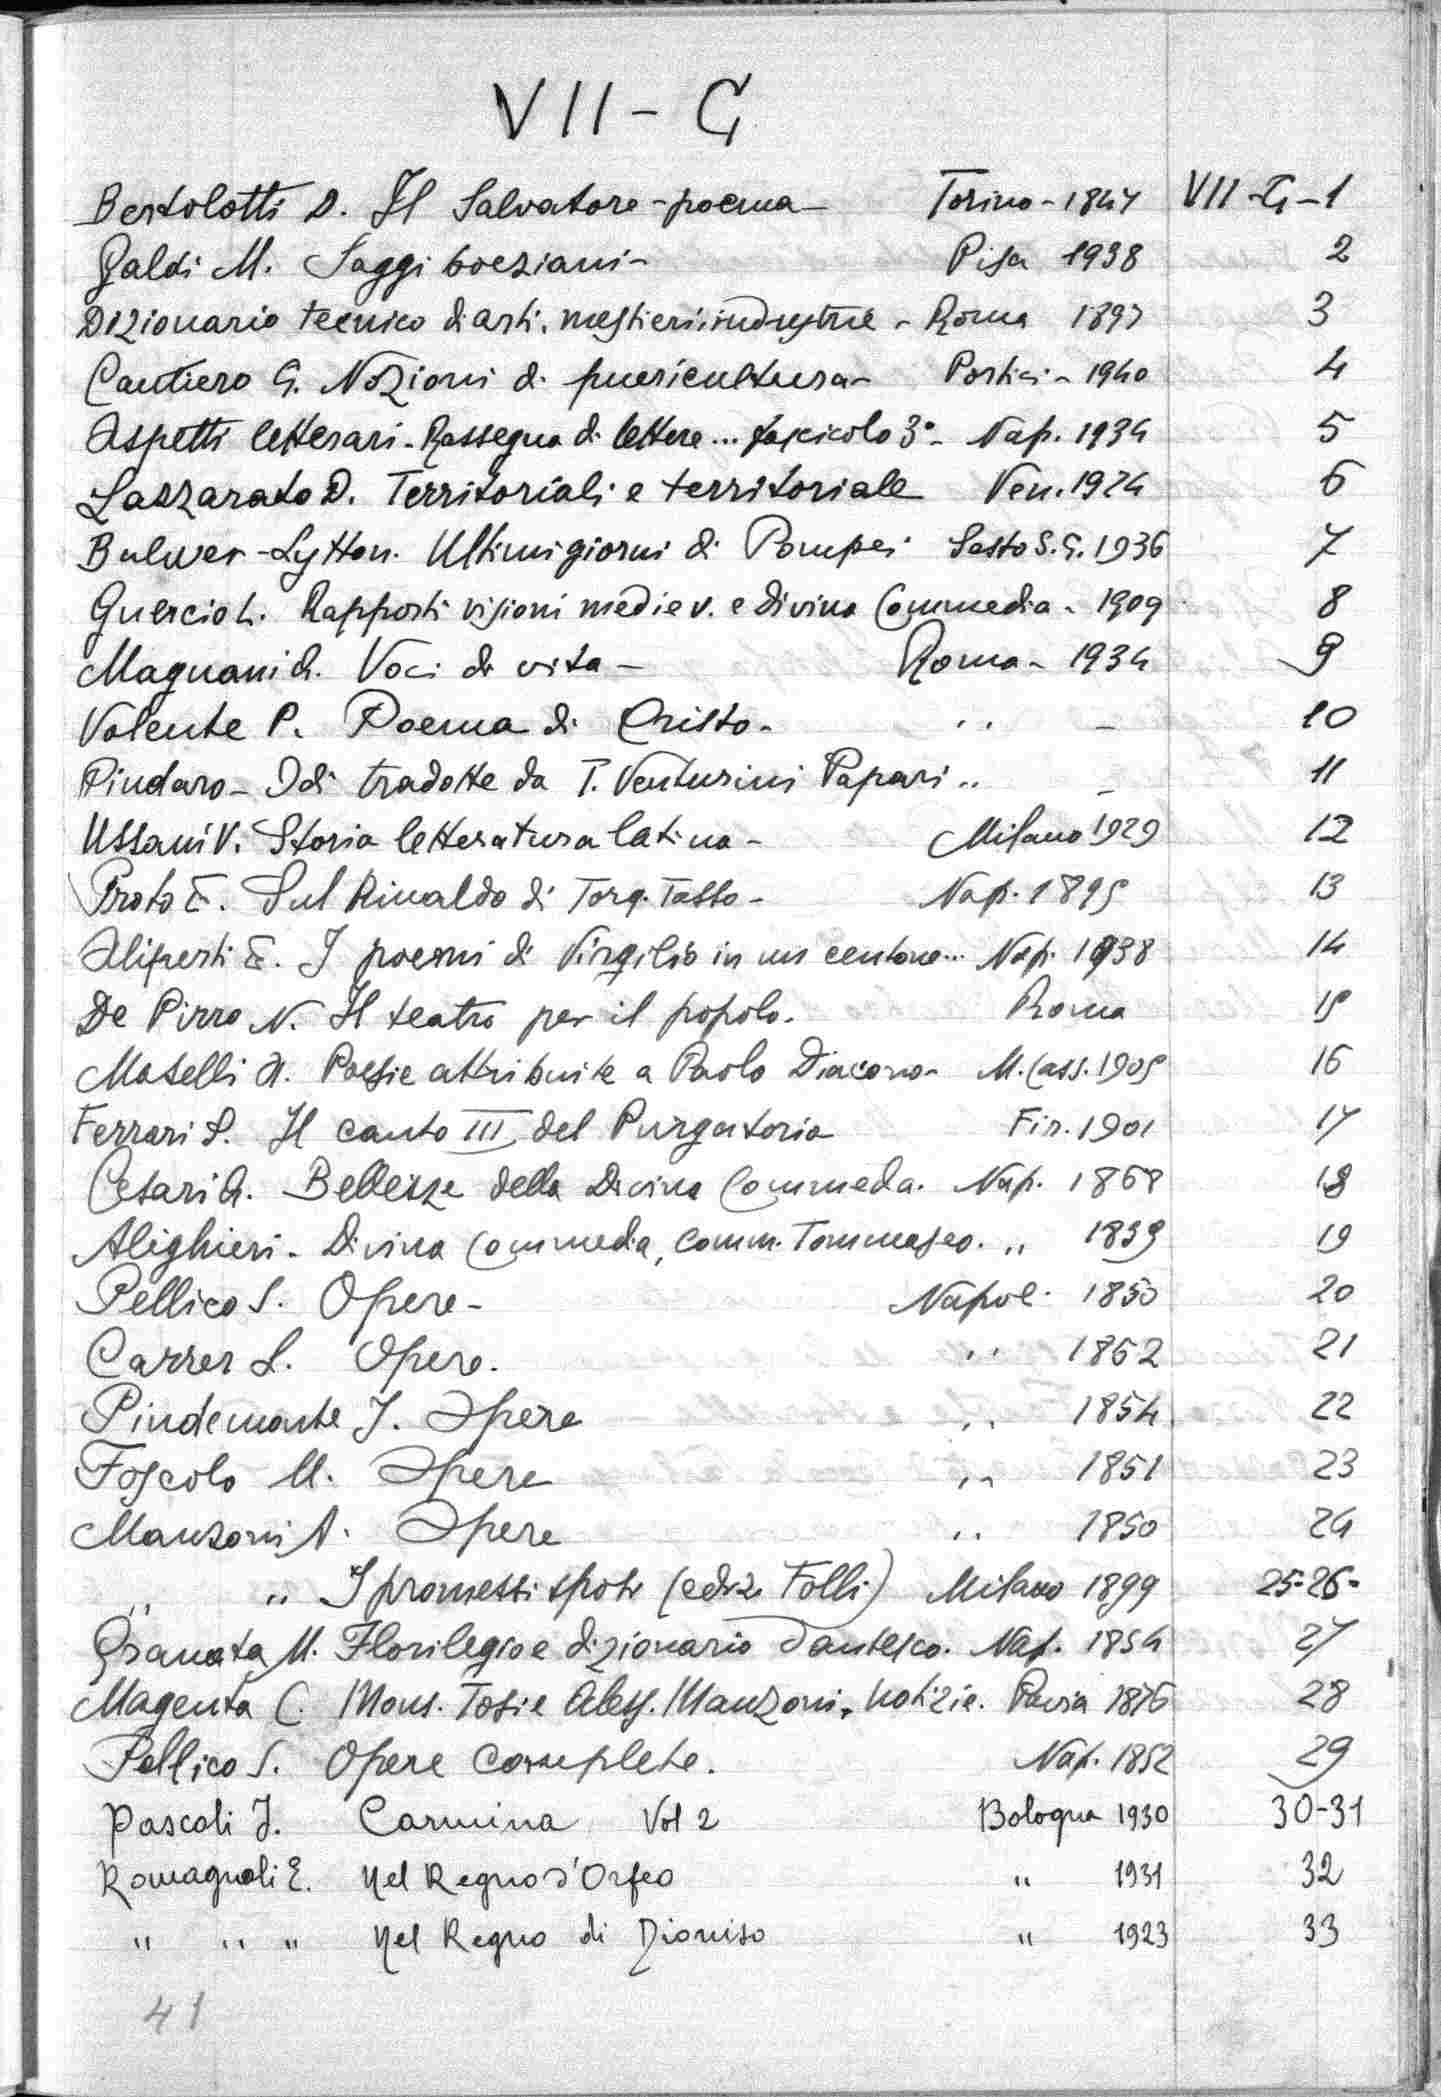 VII - G
Bertolotti D. Il Salvatore - poema - Torino - 1847 VII - G - 1
Galdi M. Saggi boeziani - Pisa 1938 2
Dizionario tecnico di arti, mestieri, industrie - Roma 1897 3
Cautiero G. Nozioni di puericultura - Portici - 1940 4
Aspetti letterari - Rassegna di lettere ... fascicolo 3° - Nap. 1934 5
Lazzarato D. Territoriali e territoriale Ven. 1924 6
Bulwer - Lytton. Ultimi giorni di Pompei Sesto S. G. 1936 7
Guercio L. Rapporti visioni mediev. e Divina Commedia - 1909 8
Magnani A. Voci di vita - Roma - 1934 9
Valente P. Poema di Cristo - " - 10
Pindaro - Odi tradotte da T. Venturini Papari " - 11
Ussani V. Storia letteratura latina - Milano 1929 12
Proto E. Sul Rinaldo di Torq. Tasso - Nap. 1895 13
Aliperti E. I poemi di Virgilio in un centone ... Nap. 1938 14
De Pirro N. Il teatro per il popolo. Roma 15
Maselli A. Poesie attribuite a Paolo Diacono - M. Cass. 1905 16
Ferrari S. Il canto III del Purgatorio Fir. 1901 17
Cesari A. Bellezze della Divina Commeda. Nap. 1868 18
Alighieri - Divina Commedia, comm. Tommaseo. " 1839 19
Pellico S. Opere - Napol. 1850 20
Carrer L. Opere. " 1862 21
Pindemonte I. Opere " 1854 22
Foscolo U. Opere " 1851 23
Manzoni A. Opere " 1850 24
" " I promessi sposi (ediz. Folli) Milano 1899 25-26-
Granata M. Florilegio e dizionario dantesco. Nap. 1854 27
Magenta C. Mons. Tosi e Aless. Manzoni, notizie. Pavia 1876 28
Pellico S. Opere complete. Nap. 1852 29
Pascoli J. Carmina Vol 2 Bologna 1930 30-31
Romagnoli E. Nel Regno d'Orfeo " 1931 32
" " " Nel Regno di Dioniso " 1923 33
41